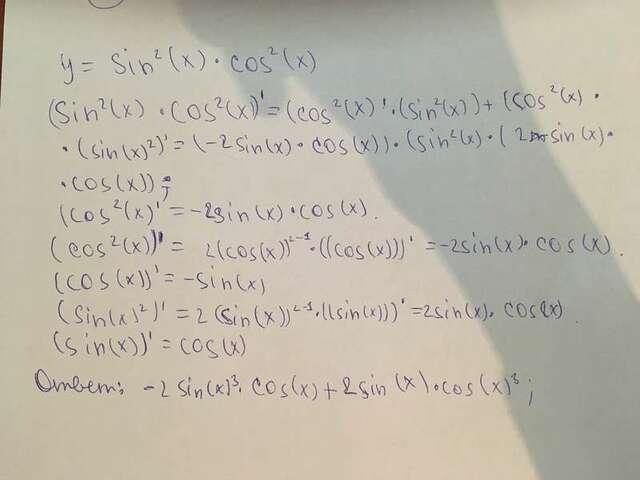 y = Sin²(x) · cos²(x)
(Sin²(x) · cos²(x))' = (cos²(x))' · (sin²(x)) + (cos²(x) ·
· (sin(x)²)' = (-2sin(x) · cos(x)) · (sin²(x) · (2sin(x) ·
· cos(x));
(cos²(x)' = -2sin(x) · cos(x).
(cos²(x))' = 2(cos(x))²⁻¹ · ((cos(x)))' = -2sin(x) · cos(x).
(cos(x))' = -sin(x)
(sin(x)²)' = 2(sin(x))²⁻¹ · ((sin(x)))' = 2sin(x) · cos(x)
(sin(x))' = cos(x)
Ответ: -2 sin(x)³ · cos(x) + 2sin(x) · cos(x)³;